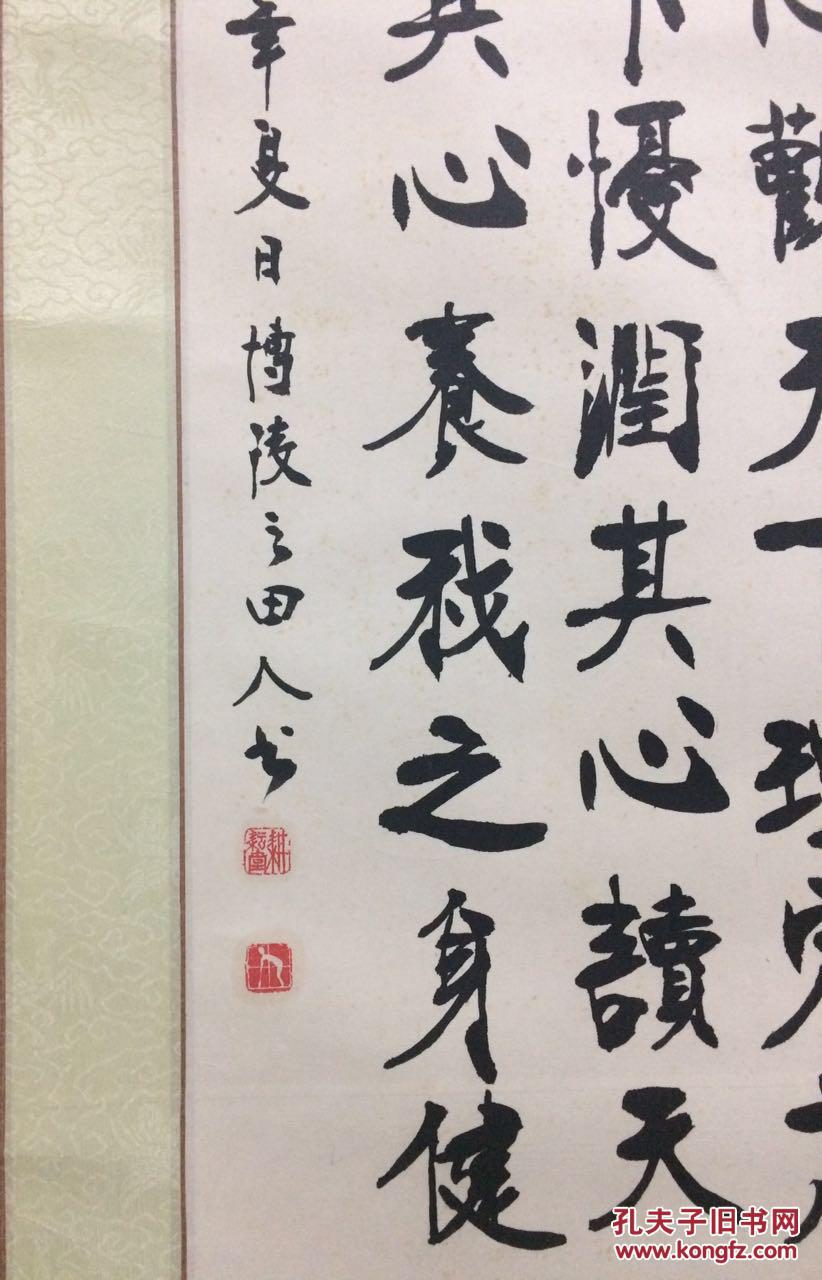 觀天一理
憂潤其心讀天
其心養我之身健
年夏日博陵之田人书
耕耘堂
孔夫子旧书网
www.kongfz.com